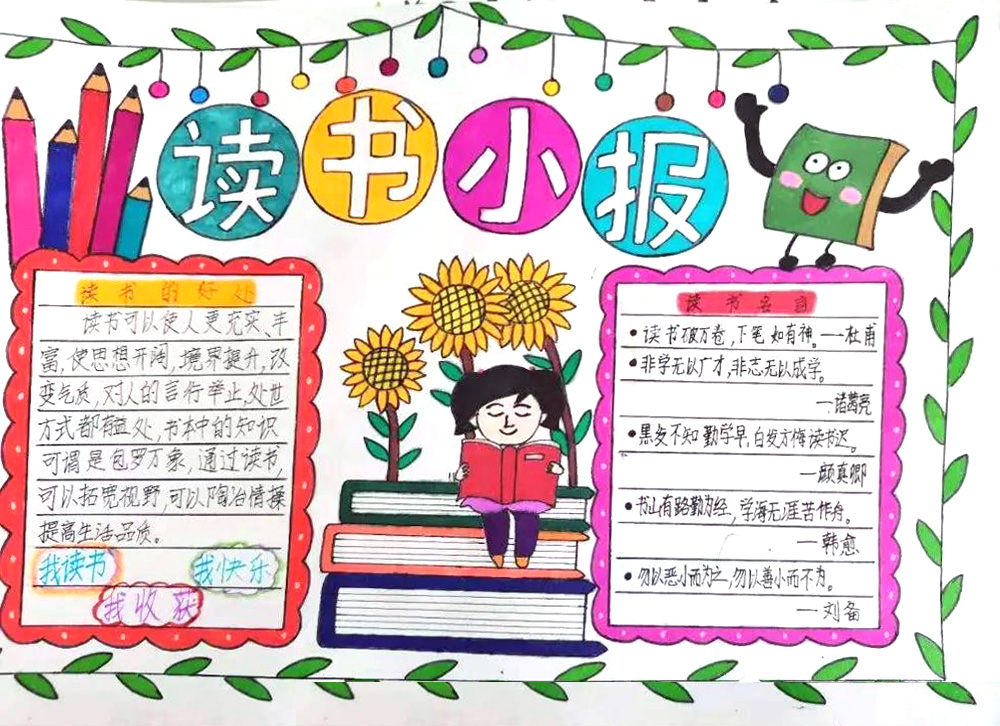 读书小报
读书的好处
读书可以使人更充实、丰
富,使思想开阔,境界提升,改
变气质,对人的言行举止,处世
方式都有益处,书本中的知识
可谓是包罗万象,通过读书,
可以拓宽视野,可以陶冶情操
提高生活品质。
我读书
我快乐
我收获
读书名言
•读书破万卷,下笔如有神。——杜甫
•非学无以广才,非志无以成学。
—诸葛亮
•黑发不知勤学早,白发方悔读书迟。
—颜真卿
•书山有路勤为经,学海无涯苦作舟。
—韩愈
•勿以恶小而为之,勿以善小而不为。
—刘备